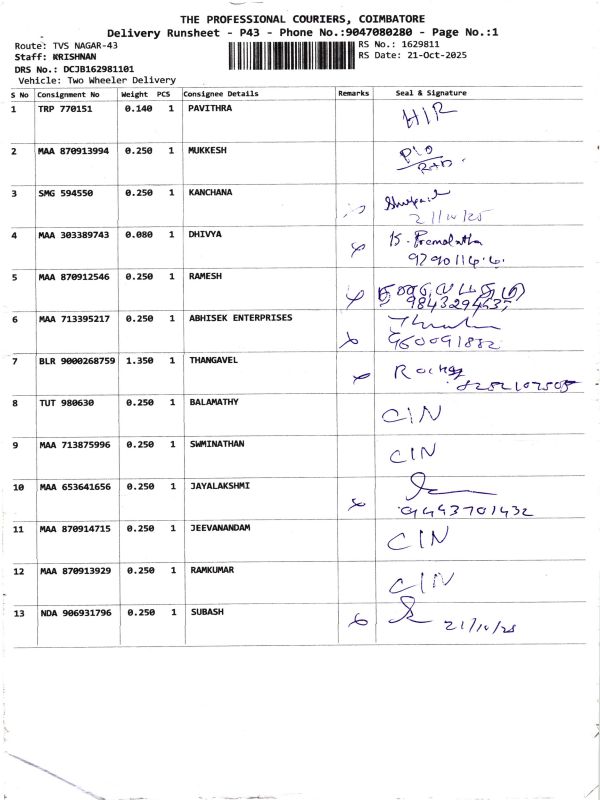 THE PROFESSIONAL COURIERS, COIMBATORE
Delivery Runsheet - P43 - Phone No.:9047080280 - Page No.:1
Route: TVS NAGAR-43 RS No.: 1629811
Staff: KRISHNAN RS Date: 21-Oct-2025
DRS No.: DCJB162981101
Vehicle: Two Wheeler Delivery
S No Consignment No Weight PCS Consignee Details Remarks Seal & Signature
1 TRP 770151 0.140 1 PAVITHRA
2 MAA 870913994 0.250 1 MUKKESH
3 SMG 594550 0.250 1 KANCHANA
21/10/25
4 MAA 303389743 0.080 1 DHIVYA K. Premalatha
5 MAA 870912546 0.250 1 RAMESH
6 MAA 713395217 0.250 1 ABHISEK ENTERPRISES
9600091882
7 BLR 9000268759 1.350 1 THANGAVEL
8 TUT 980630 0.250 1 BALAMATHY CIN
9 MAA 713875996 0.250 1 SWMINATHAN CIN
10 MAA 653641656 0.250 1 JAYALAKSHMI
9443701432
11 MAA 870914715 0.250 1 JEEVANANDAM CIN
12 MAA 870913929 0.250 1 RAMKUMAR CIN
13 NDA 906931796 0.250 1 SUBASH 21/10/25